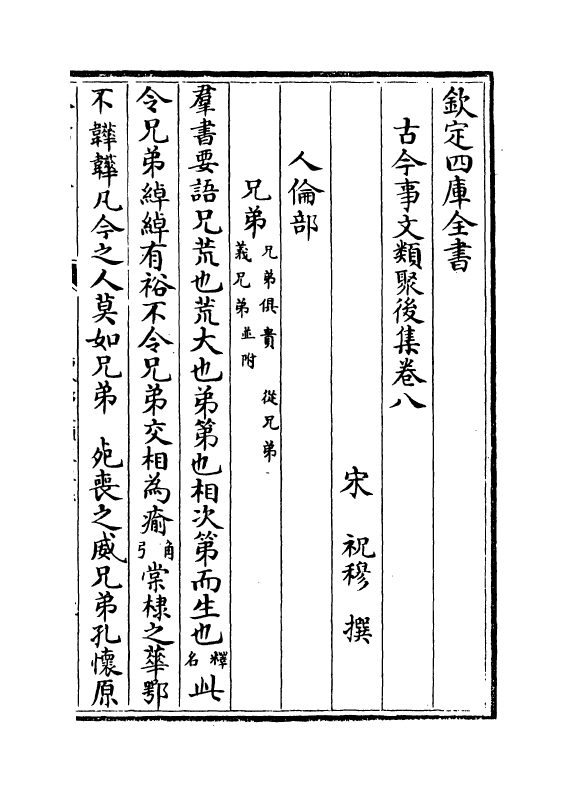 欽定四庫全書
古今事文類聚後集卷八
宋　祝穆　撰
人倫部
兄弟 兄弟俱貴　從兄弟
義兄弟並附
羣書要語兄荒也荒大也弟第也相次第而生也釋名此
令兄弟綽綽有裕不令兄弟交相為瘉角弓棠棣之華鄂
不韡韡凡今之人莫如兄弟　死喪之威兄弟孔懷原